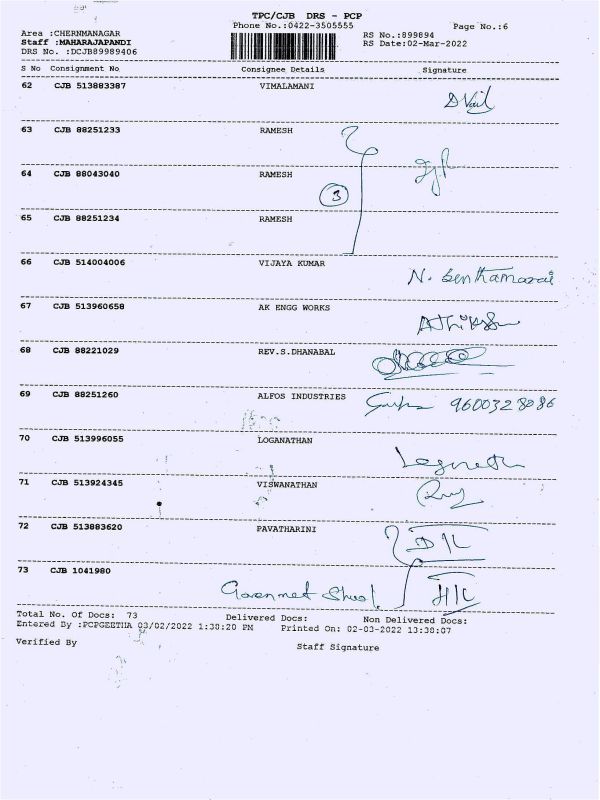 TPC/CJB DRS - PCP
Phone No.:0422-3505555 Page No.:6
Area :CHERNMANAGAR RS No.:899894
Staff :MAHARAJAPANDI RS Date:02-Mar-2022
DRS No. :DCJB89989406
S No Consignment No Consignee Details Signature
62 CJB 513883387 VIMALAMANI
63 CJB 88251233 RAMESH
64 CJB 88043040 RAMESH
3
65 CJB 88251234 RAMESH
66 CJB 514004006 VIJAYA KUMAR
N. Senthamarai
67 CJB 513960658 AK ENGG WORKS
68 CJB 88221029 REV.S.DHANABAL
69 CJB 88251260 ALFOS INDUSTRIES 9600328086
70 CJB 513996055 LOGANATHAN
71 CJB 513924345 VISWANATHAN
72 CJB 513883620 PAVATHARINI
73 CJB 1041980
Total No. Of Docs: 73 Delivered Docs: Non Delivered Docs:
Entered By :PCPGEETHA 03/02/2022 1:38:20 PM Printed On: 02-03-2022 13:38:07
Verified By Staff Signature